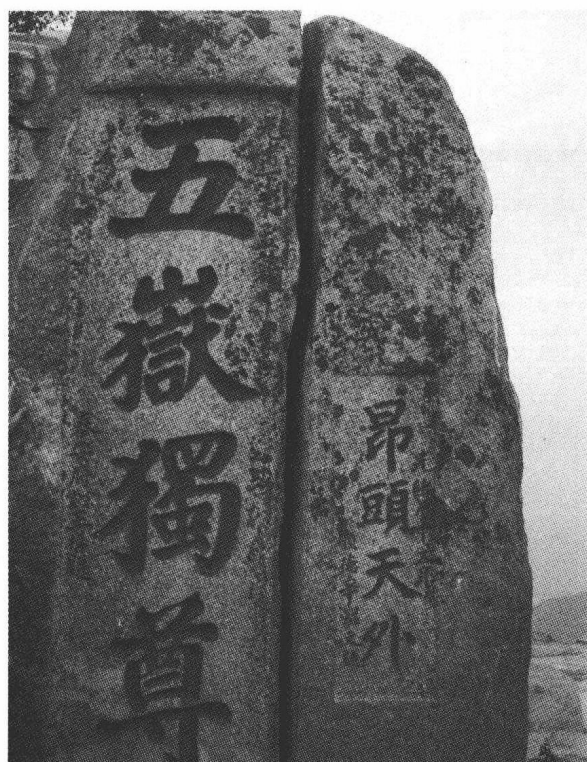 五嶽獨尊
昂頭天外